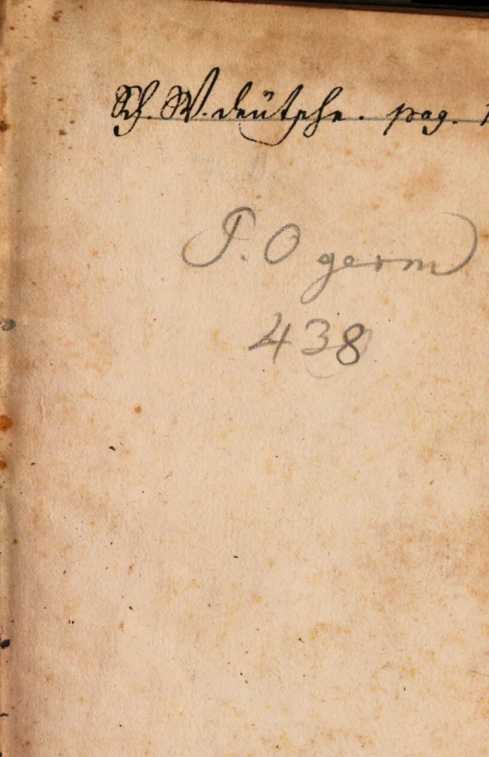 Sch. W. deütsche. pag. 1
P. O germ
438